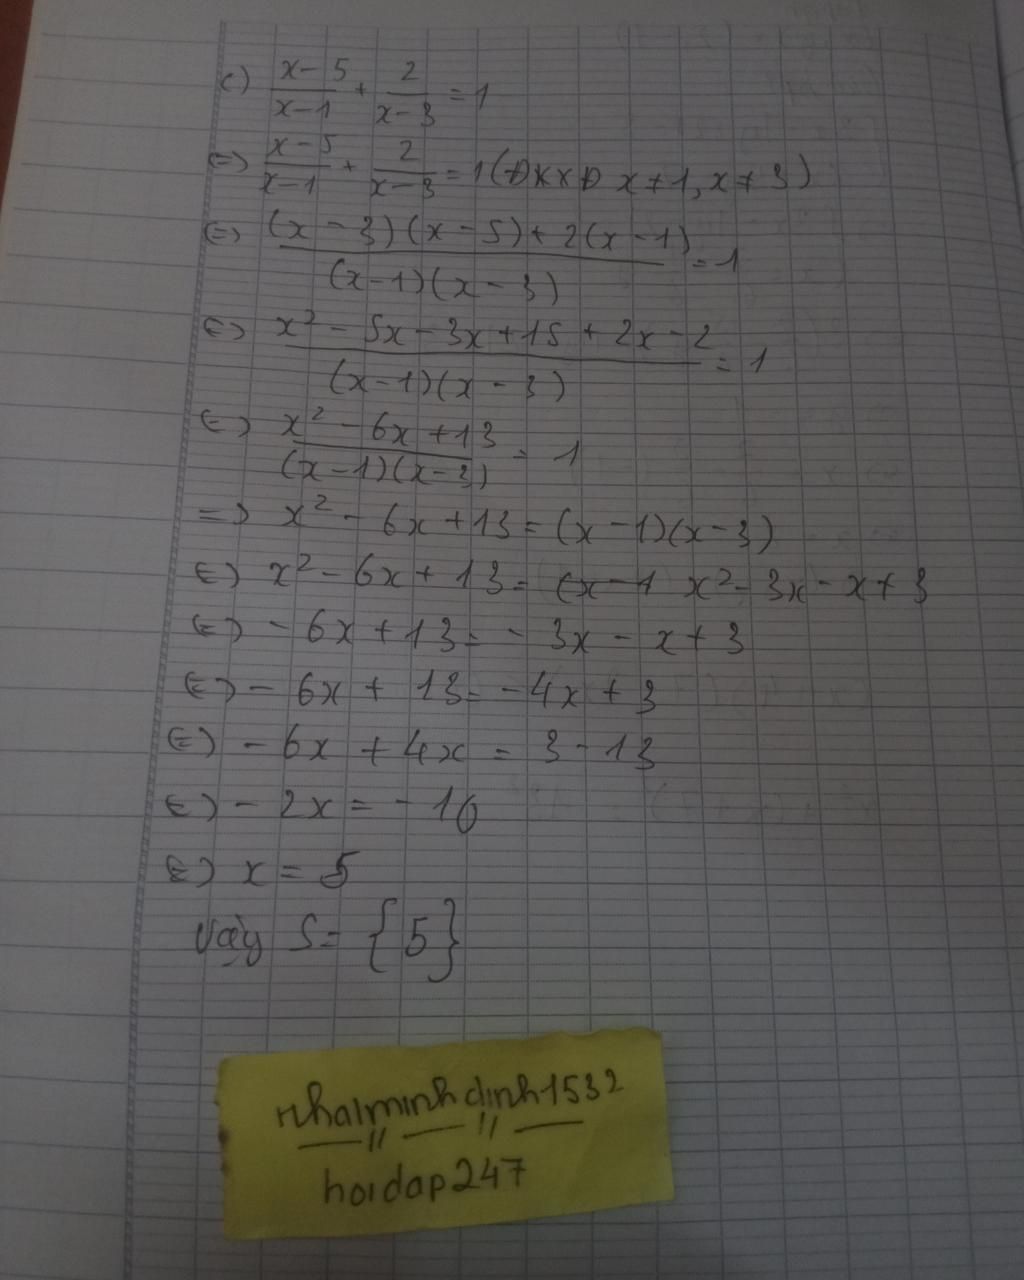 c) (x-5)/(x-1) + 2/(x-3) = 1
(=) (x-5)/(x-1) + 2/(x-3) = 1 (ĐKXĐ x ≠ 1, x ≠ 3)
(=) ((x-3)(x-5)+2(x-1))/((x-1)(x-3)) = 1
(=) (x²-5x-3x+15+2x-2)/((x-1)(x-3)) = 1
(=) (x²-6x+13)/((x-1)(x-3)) = 1
=) x²-6x+13=(x-1)(x-3)
(=) x²-6x+13= x²-3x-x+3
(=) -6x+13=-3x-x+3
(=) -6x+13=-4x+3
(=) -6x+4x=3-13
(=) -2x=-10
(=) x=5
Vậy S={5}
nhalminhdinh1532
hoidap247